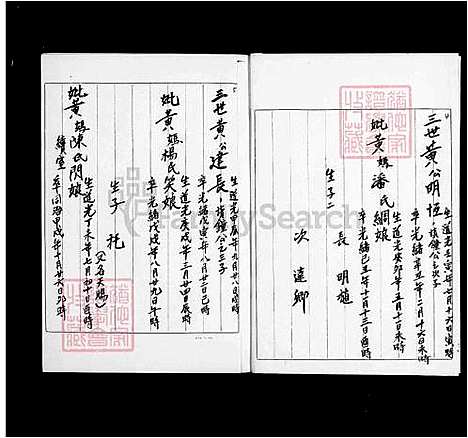 三世黃公明恒 諱鏡公之次子
生道光壬寅年七月十六日寅時
卒光緒辛丑年二月十六日未時
妣黃媽潘氏綢娘
生道光癸卯年五月十日未時
卒光緒己丑年十月十三日酉時
生子二 長 明植
次 達卿
三世黃公建長 諱鏡公之三子
生道光甲辰年九月廿八日
卒光緒戊寅年八月廿二日巳時
妣黃媽楊氏笑娘
生道光庚戌年三月廿四日辰時
卒光緒戊戌年八月廿九日午時
生子 托
(又名天賜)
妣黃媽陳氏閃娘
繼室
生道光丁未年七月初十日酉時
卒同治甲戌年十月廿六日卯時
FamilySearch